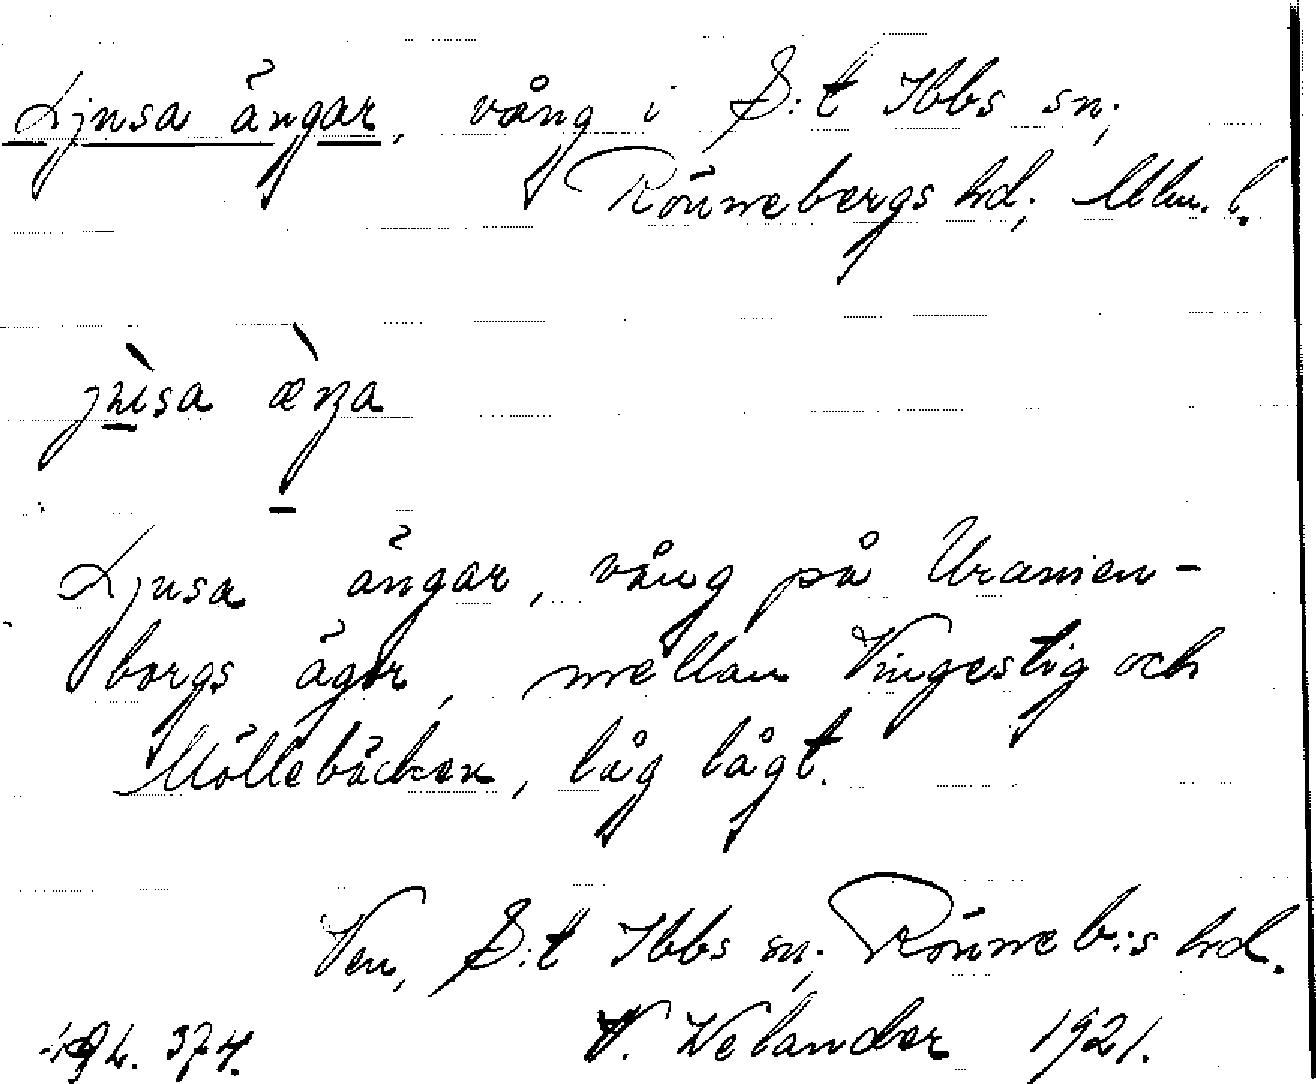 Ljusa ängar, vång i S:t Ibbs sn;
Rönnebergs hd; Mlm. l.
Ljusa ängar, vång på Uranien-
borgs ägor, mellan Vingestig och
Möllebäcken, låg lågt.
Ven, S:t Ibbs sn; Rönneb:s hd.
V. Welander 1921.